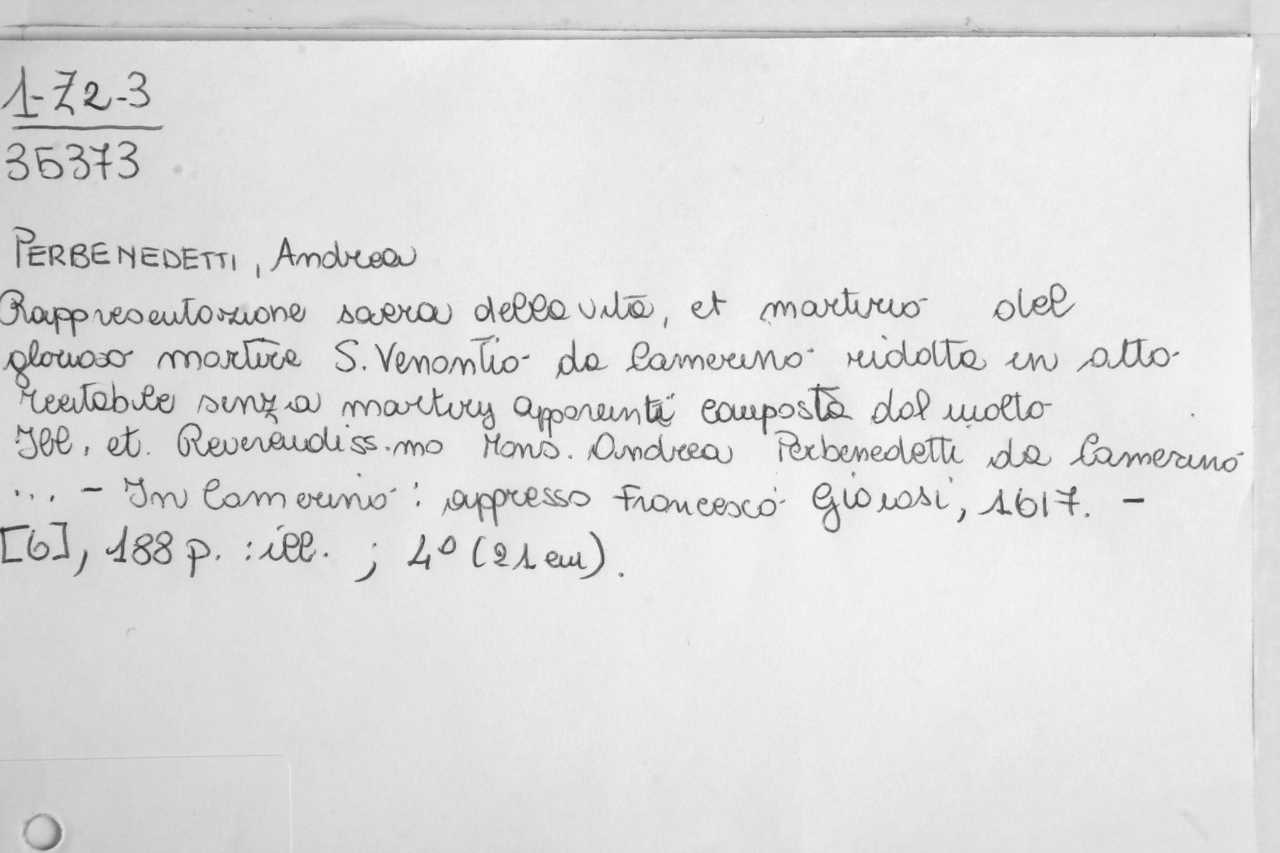 1-Z2-3
35373
PERBENEDETTI, Andrea
Rappresentazione sacra della vita, et martirio del
glorioso martire S. Venantio da Camerino ridotta in atto
recitabile senza martiry apparenti composta dal molto
Ill. et. Reverendiss.mo Mons. Andrea Perbenedetti da Camerino
... - In Camerino : appresso Francesco Gioiosi, 1617. -
[6], 188 p. : ill. ; 4° (21 cm).